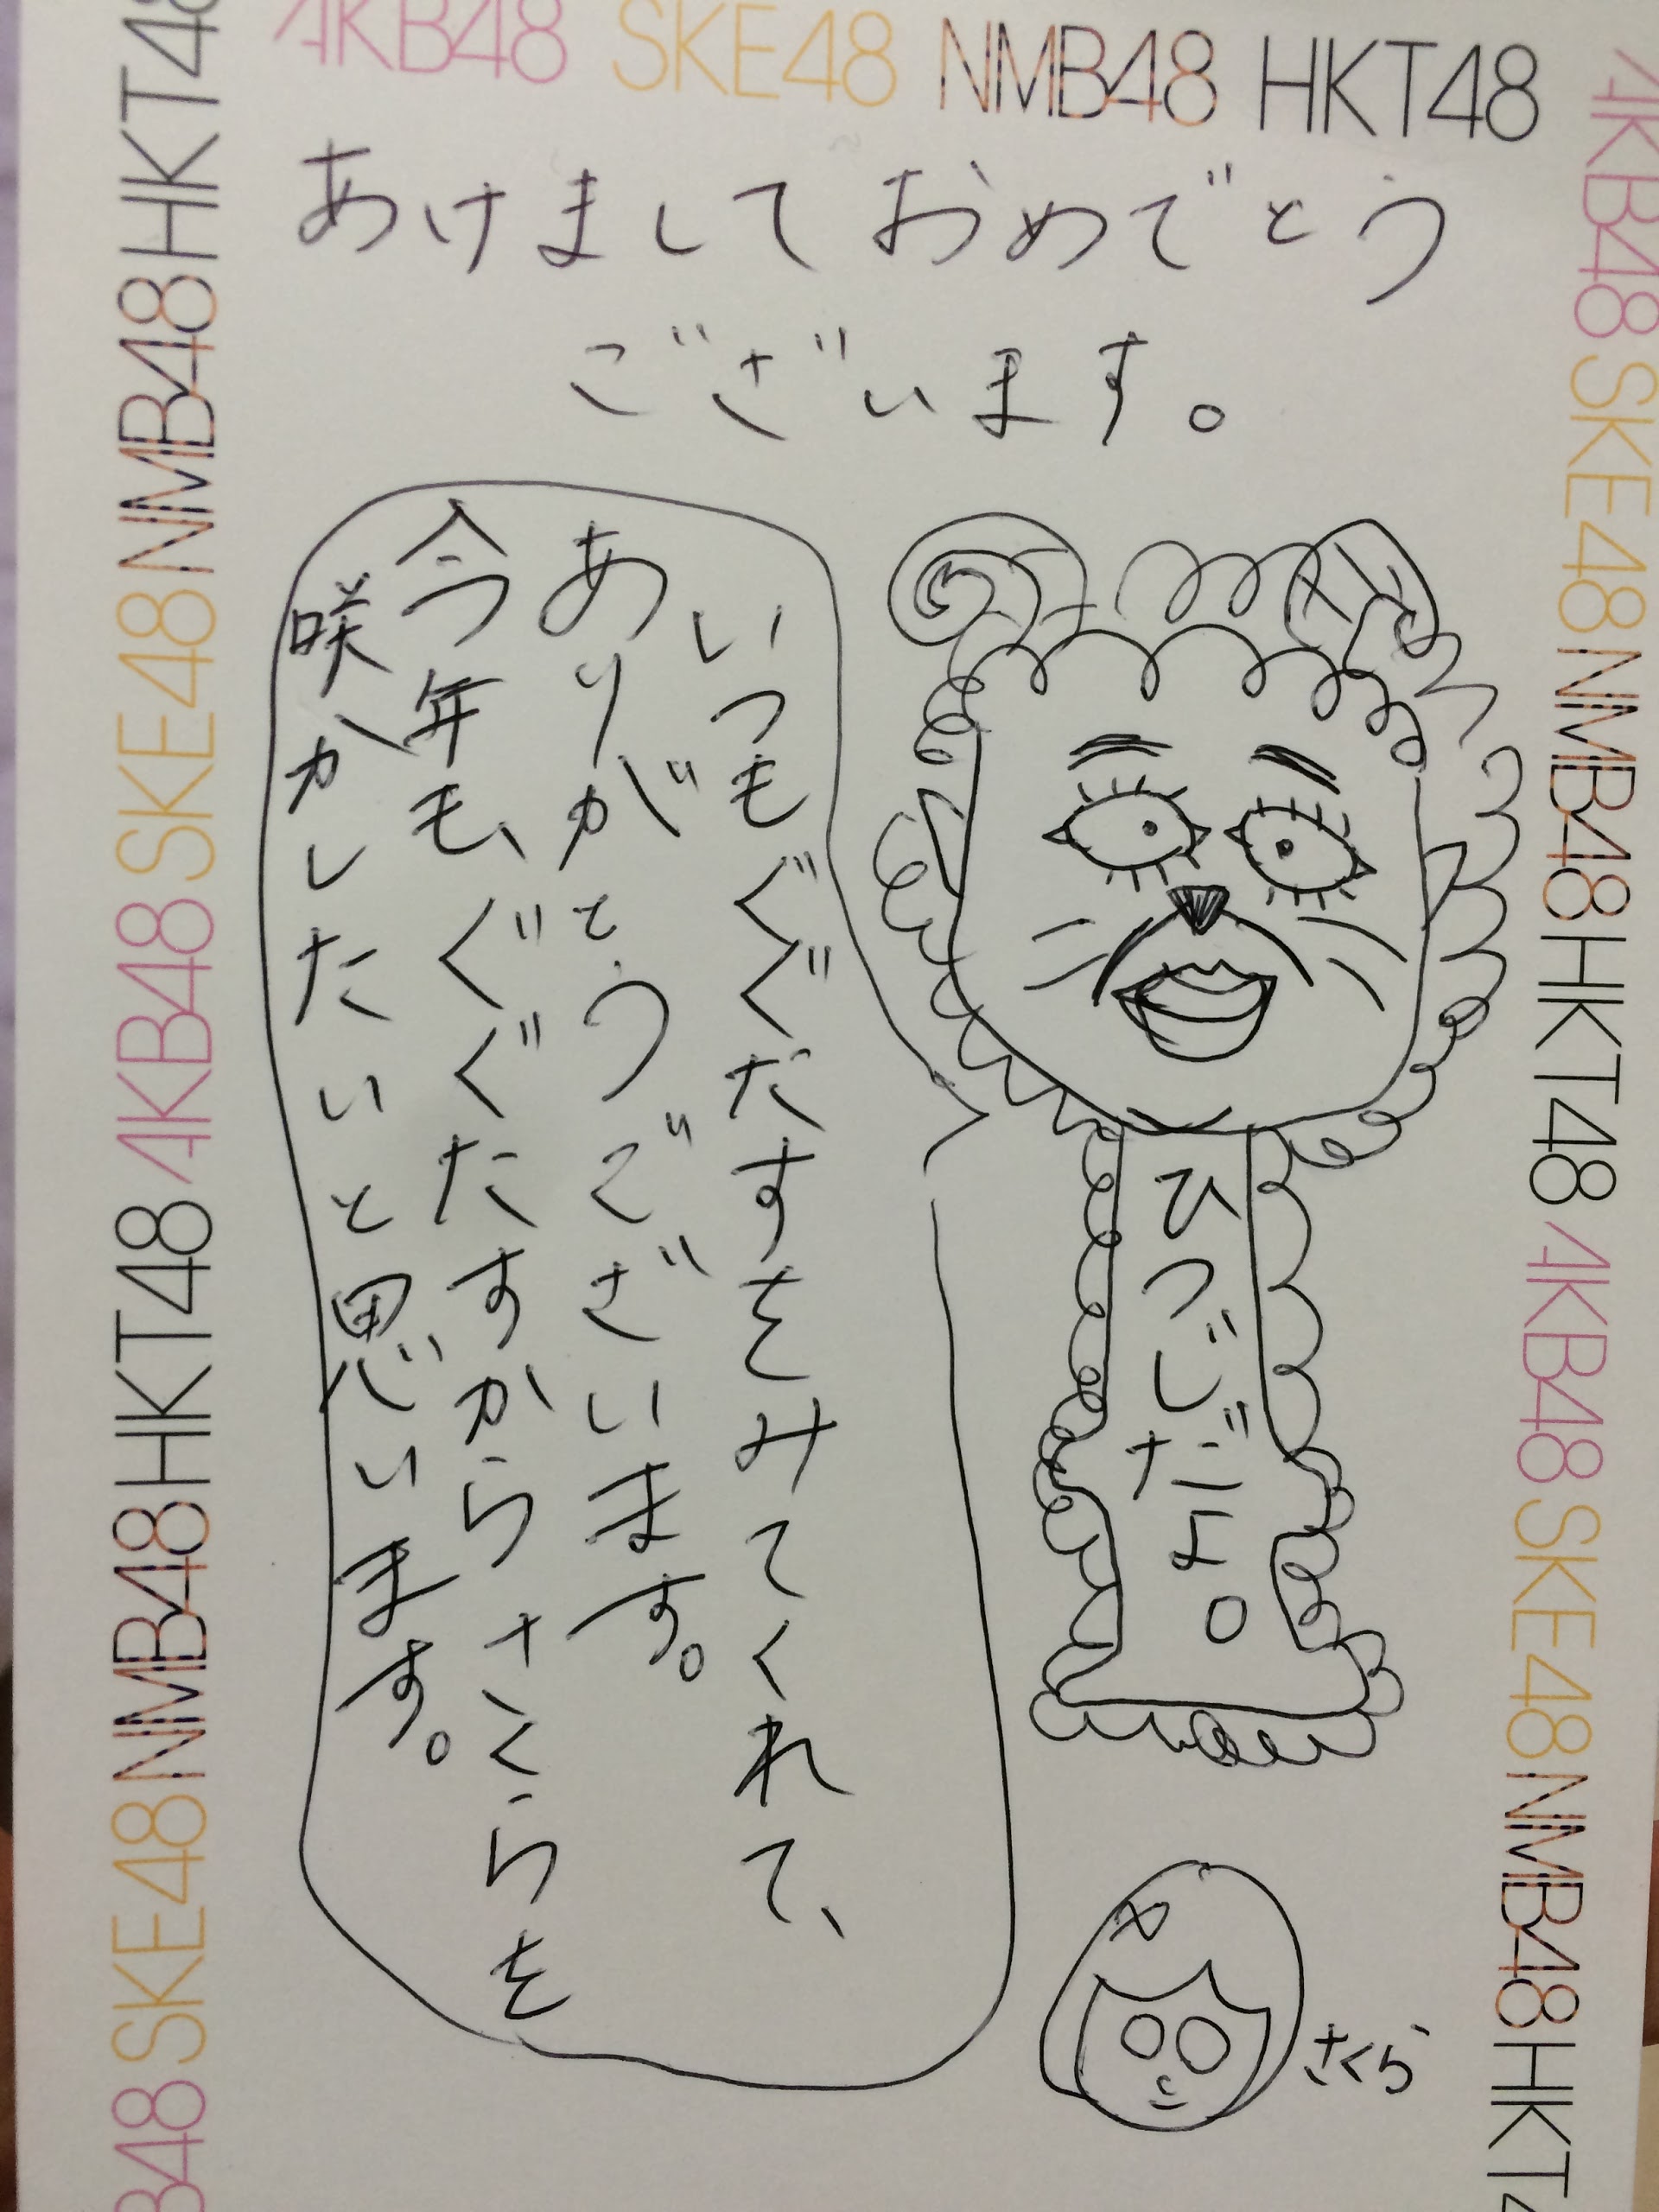 AKB48 SKE48 NMB48 HKT48
あけましておめでとう
ございます。
いつもぐぐたすをみてくれて、
ありがとうございます。
今年も、ぐぐたすからさくらを
咲かしたいと思います。
ひつじだよ。
さくら
AKB48 SKE48 NMB48 HKT48 AKB48 SKE48 NMB48 HKT
B48 SKE48 NMB48 HKT48 AKB48 SKE48 NMB48 HKT48